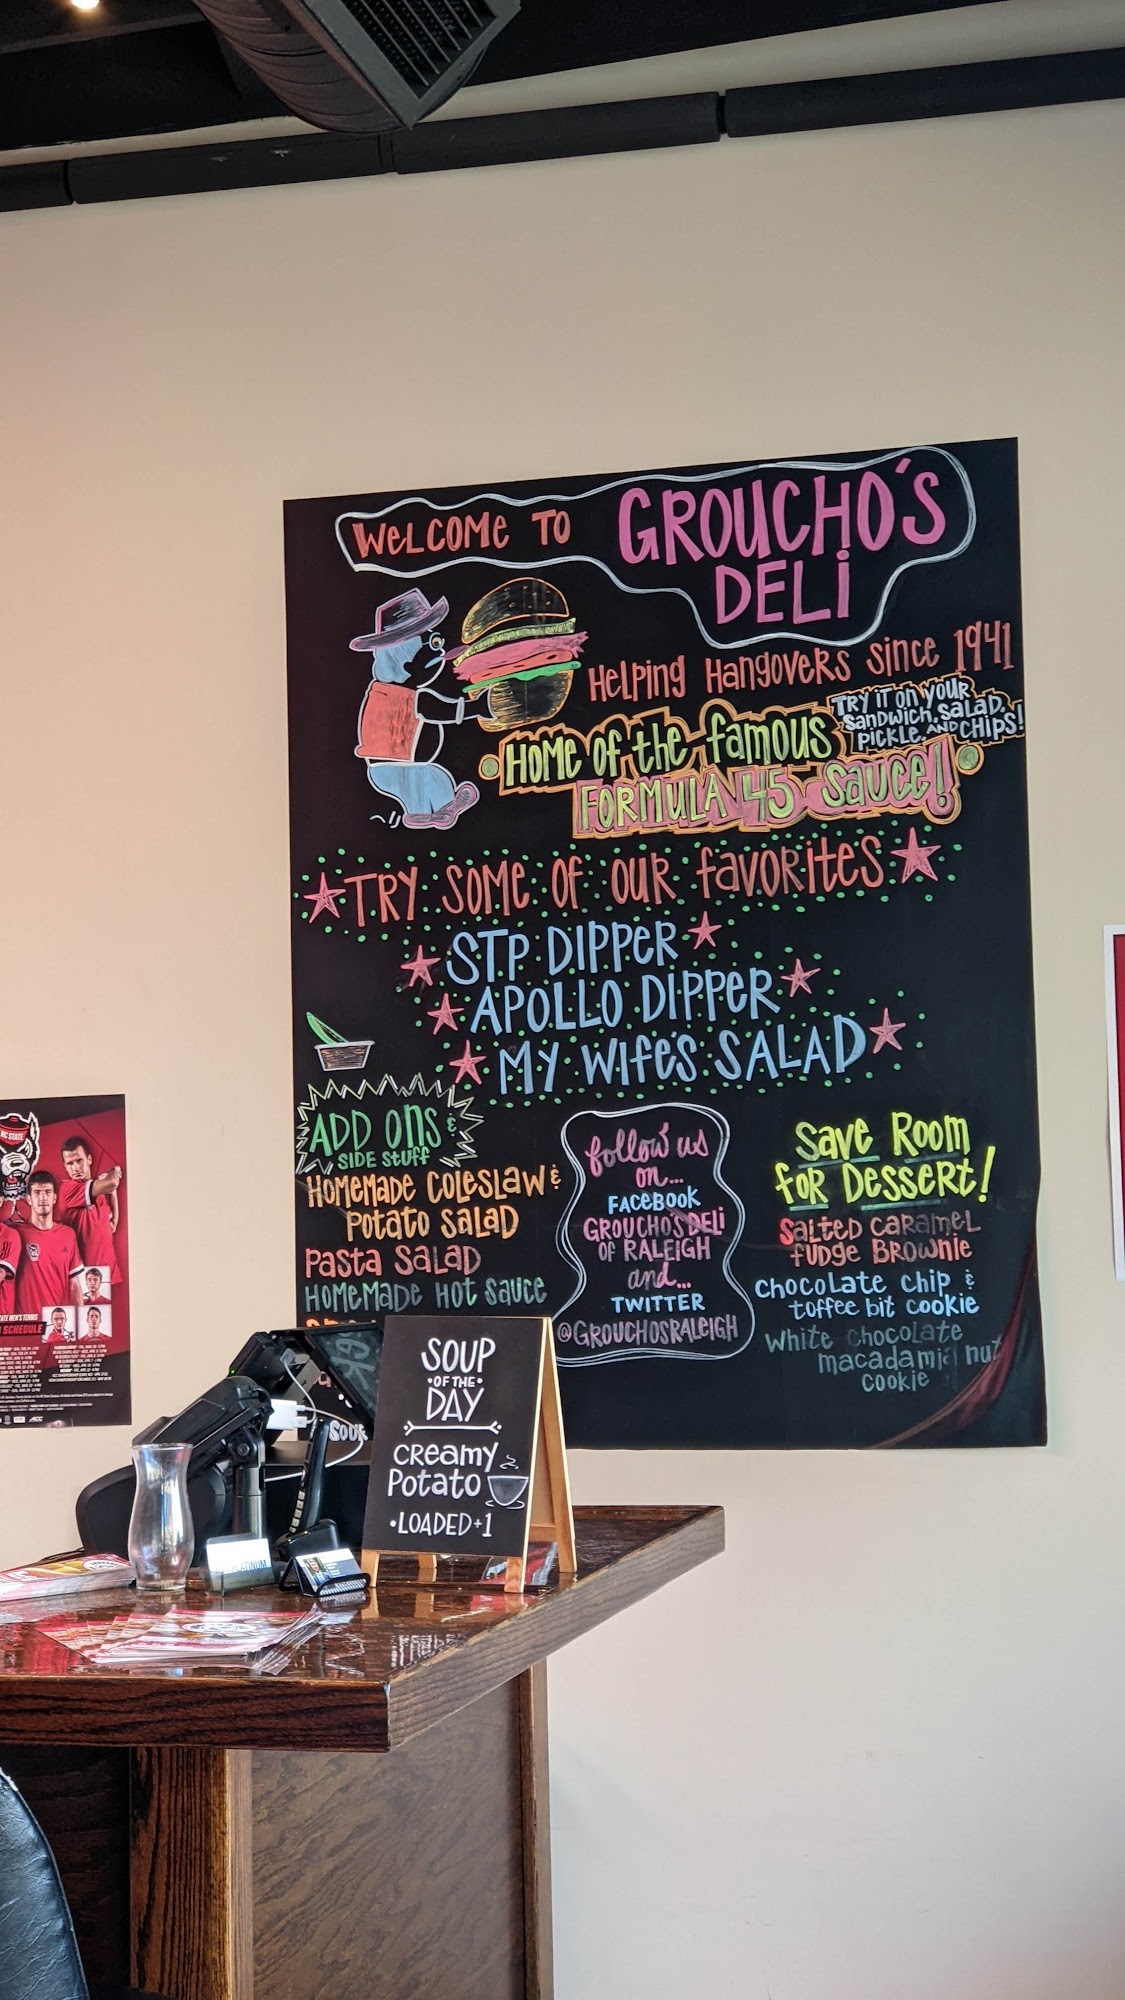 WELCOME TO GROUCHO'S
DELI
HELPING HANGOVERS SINCE 1941
HOME OF THE FAMOUS
FORMULA 45 SAUCE!
TRY IT ON YOUR
SANDWICH, SALAD,
PICKLE, AND CHIPS!
TRY SOME OF OUR FAVORITES
STP DIPPER
APOLLO DIPPER
MY WIFE'S SALAD
ADD ONS &
SIDE STUFF
HOMEMADE COLESLAW &
POTATO SALAD
PASTA SALAD
HOMEMADE HOT SAUCE
follow us
on...
FACEBOOK
GROUCHO'S DELI
OF RALEIGH
and...
TWITTER
@GROUCHOSRALEIGH
SAVE ROOM
FOR DESSERT!
SALTED CARAMEL
FUDGE BROWNIE
CHOCOLATE CHIP &
TOFFEE BIT COOKIE
WHITE CHOCOLATE
MACADAMIA NUT
COOKIE
SOUP
OF THE
DAY
CREAMY
POTATO
•LOADED+1
SOUR
NC STATE
STATE MEN'S TENNIS
SCHEDULE
ACC
PLATINUM